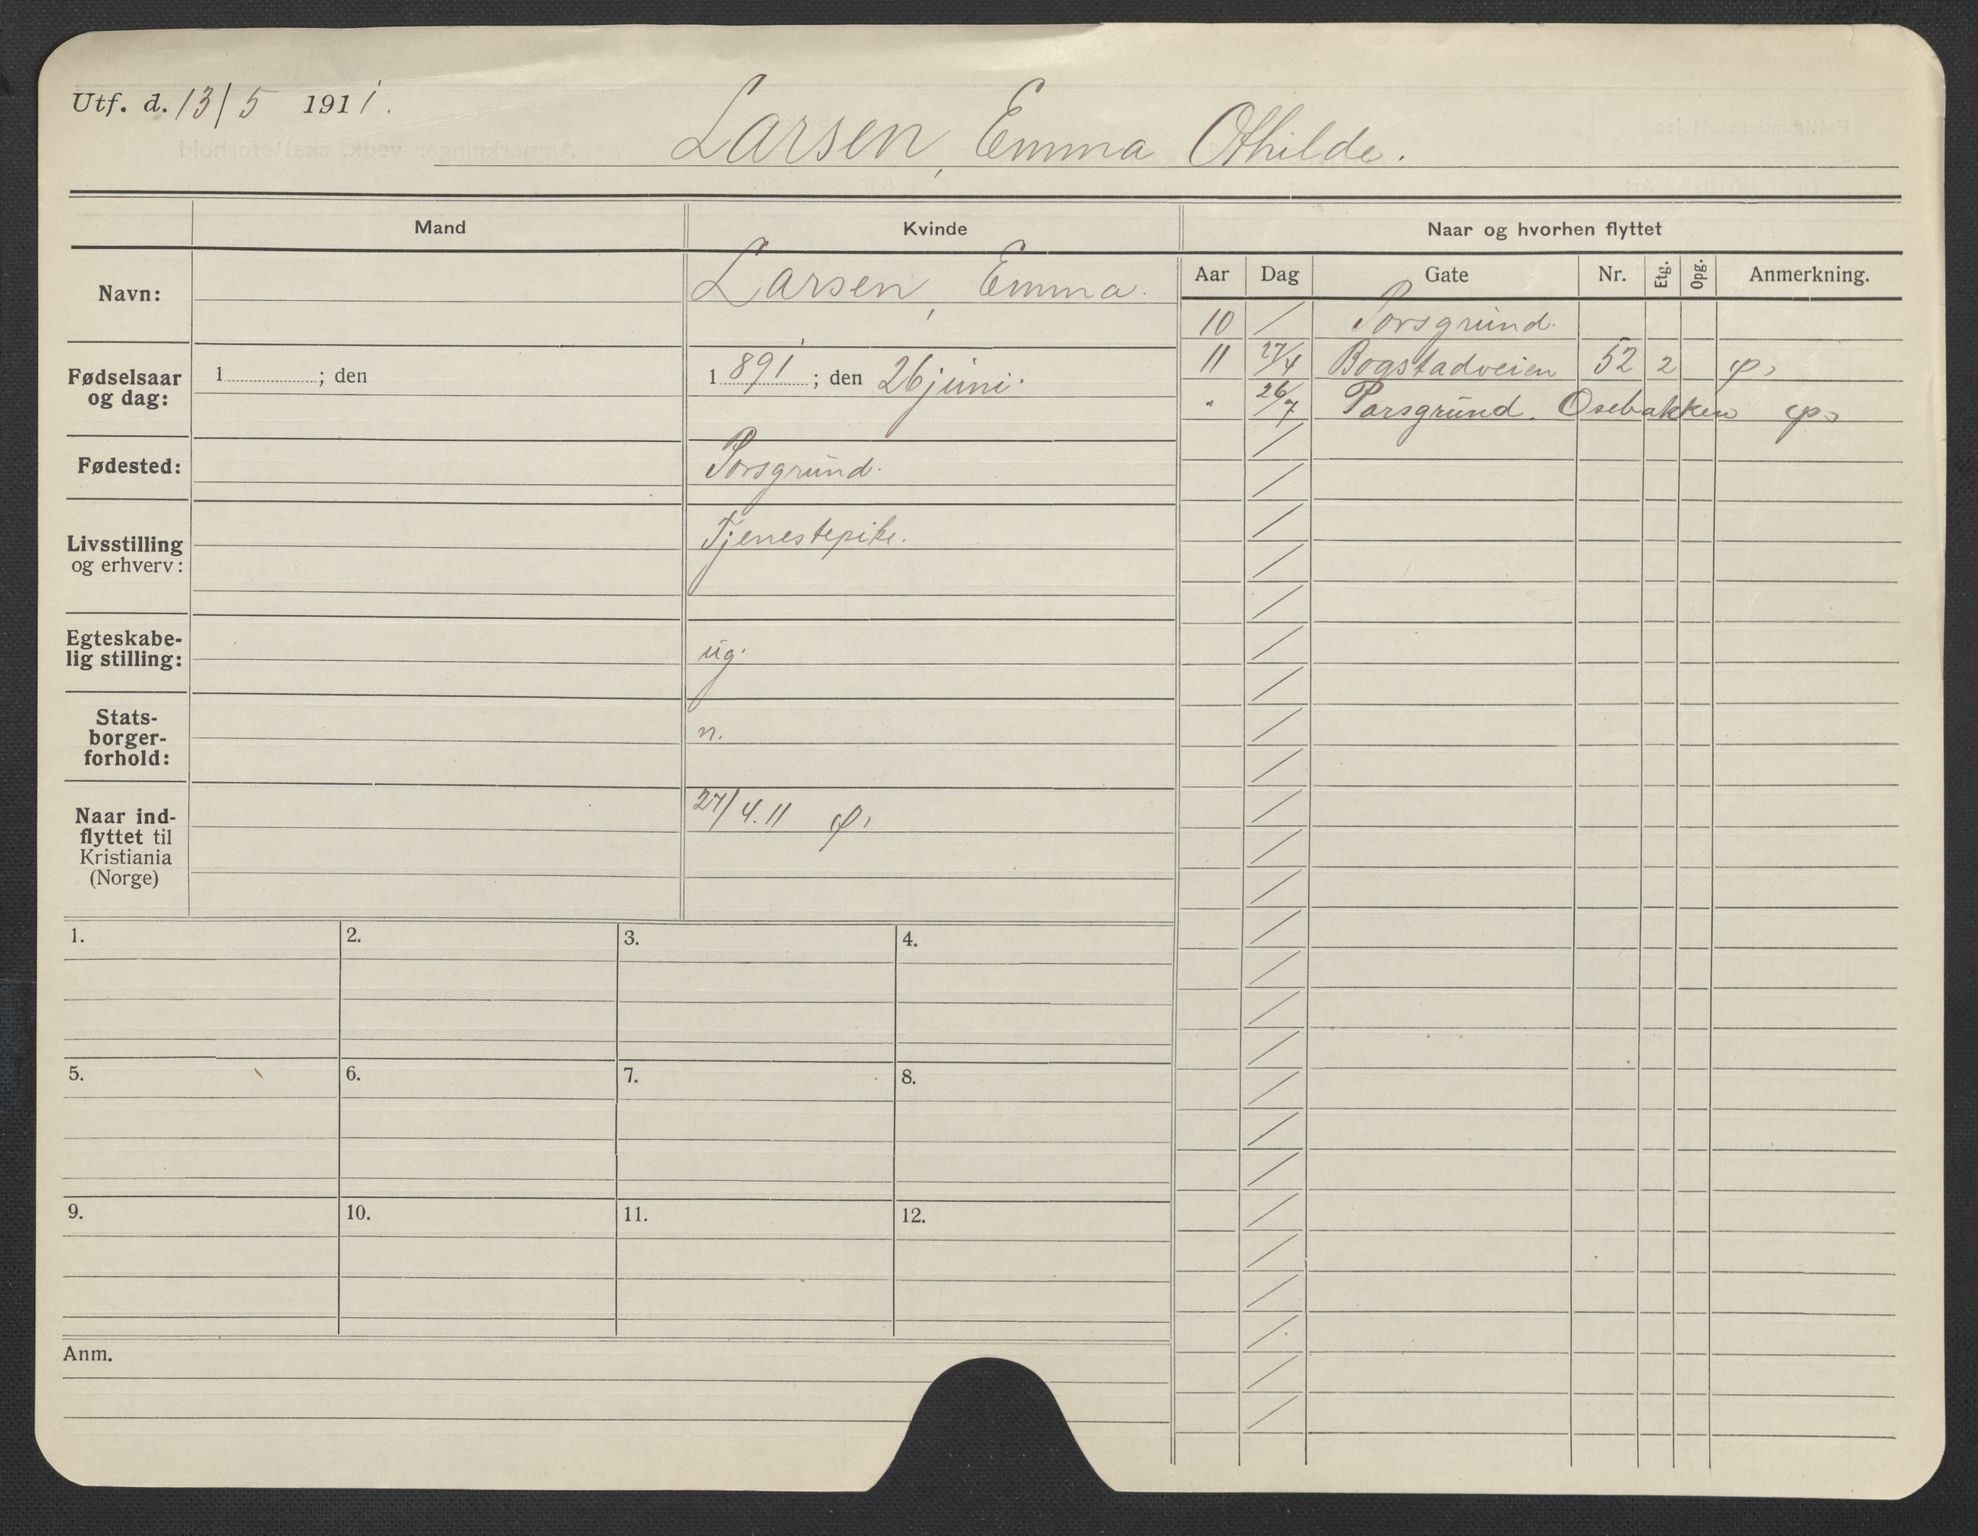 Utf. d. 13/5 1911.
Larsen, Emma Othilde.
Mand
Kvinde
Naar og hvorhen flyttet
Navn:
Larsen, Emma.
Aar Dag Gate Nr. Etg. Opg. Anmerkning.
10 / Porsgrund.
11 27/4 Bogstadveien 52 2
" 26/7 Porsgrund. Osebakken
Fødselsaar
og dag:
1 ; den
1 891 ; den 26 juni.
Fødested:
Porsgrund.
Livsstilling
og erhverv:
Tjenestepike.
Egteskabe-
lig stilling:
ug.
Stats-
borger-
forhold:
n.
Naar ind-
flyttet til
Kristiania
(Norge)
27/4.11
1. 2. 3. 4.
5. 6. 7. 8.
9. 10. 11. 12.
Anm.